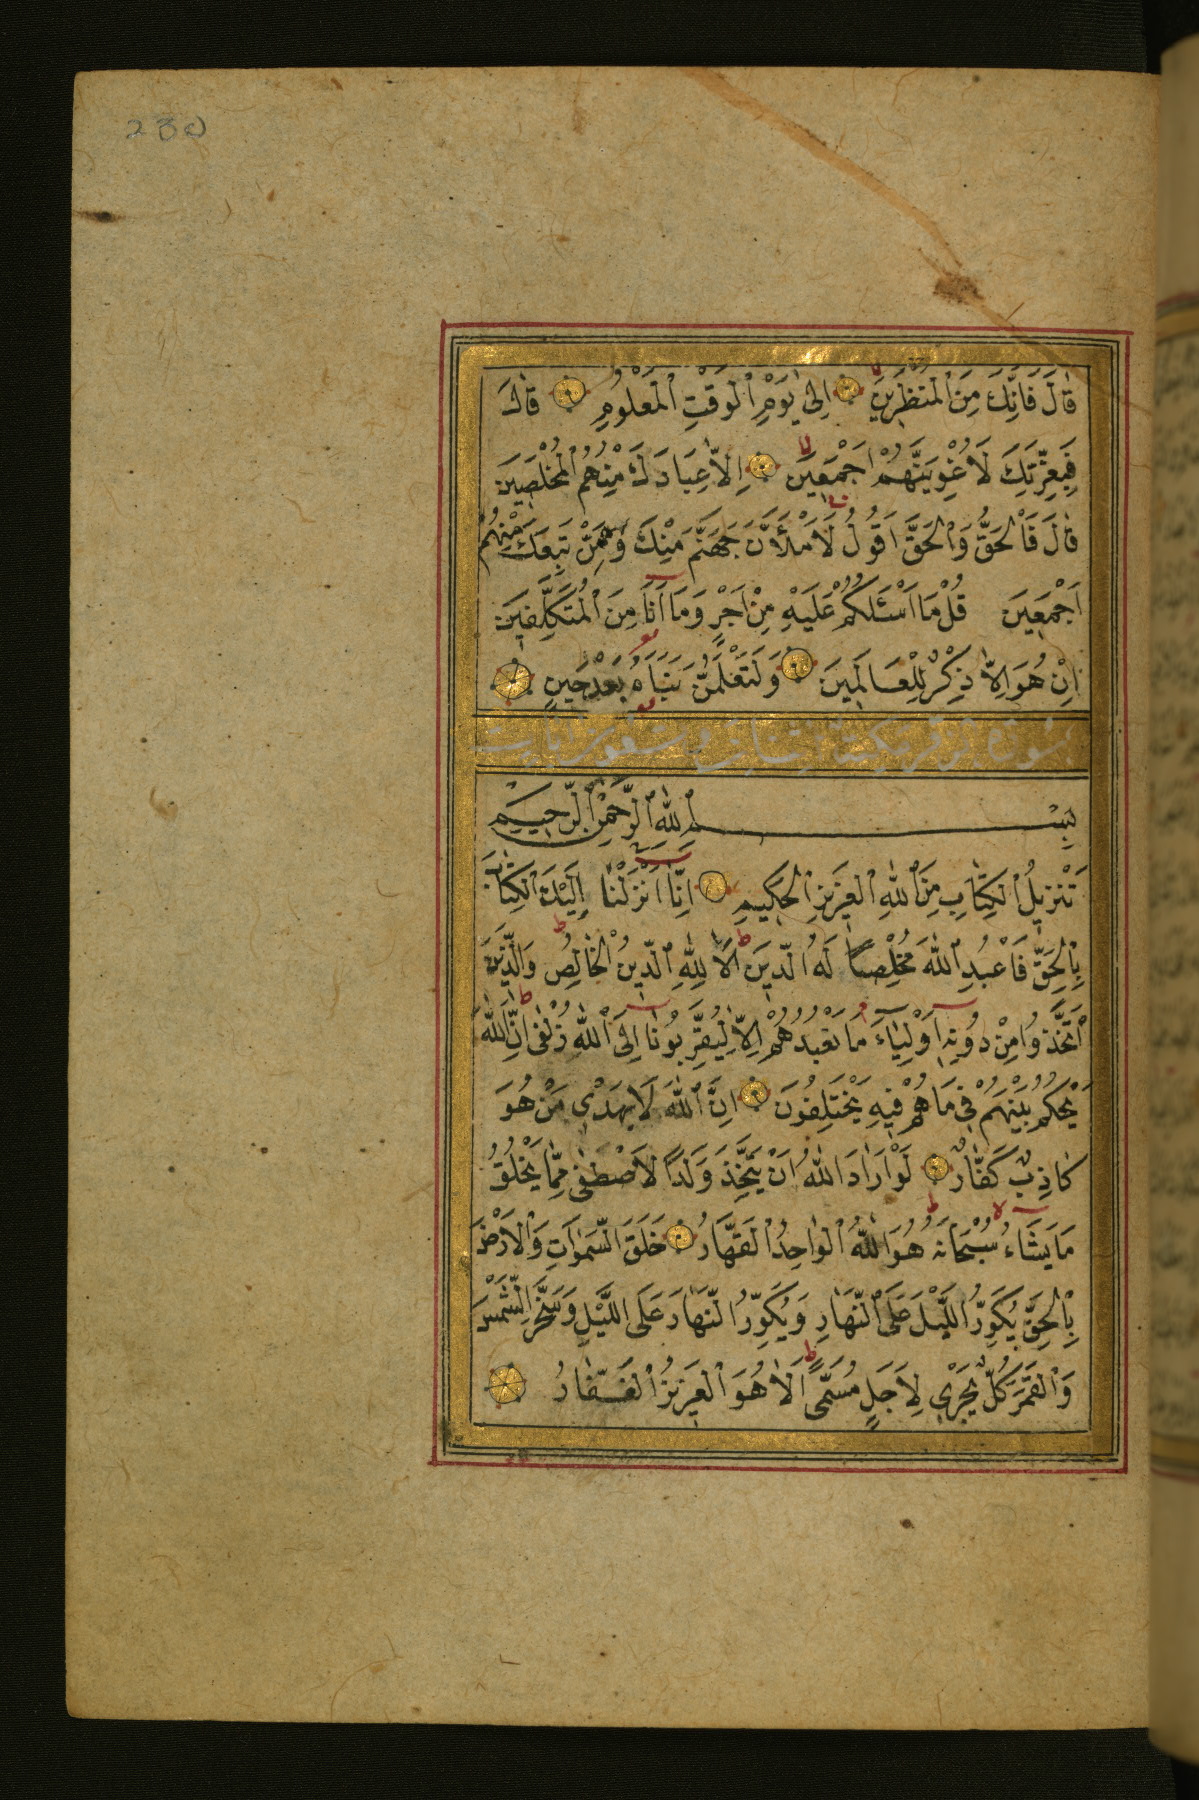 230
قَالَ فَاِنَّكَ مِنَ الْمُنْظَرِينَ اِلٰى يَوْمِ الْوَقْتِ الْمَعْلُومِ قَالَ
فَبِعِزَّتِكَ لَاُغْوِيَنَّهُمْ اَجْمَعِينَ اِلَّا عِبَادَكَ مِنْهُمُ الْمُخْلَصِينَ
قَالَ فَالْحَقُّ وَالْحَقَّ اَقُولُ لَاَمْلَأَنَّ جَهَنَّمَ مِنْكَ وَمِمَّنْ تَبِعَكَ مِنْهُمْ
اَجْمَعِينَ قُلْ مَا اَسْئَلُكُمْ عَلَيْهِ مِنْ اَجْرٍ وَمَا اَنَا مِنَ الْمُتَكَلِّفِينَ
اِنْ هُوَ اِلَّا ذِكْرٌ لِلْعَالَمِينَ وَلَتَعْلَمُنَّ نَبَاَهُ بَعْدَ حِينٍ
سورة الزمر
بِسْمِ اللهِ الرَّحْمٰنِ الرَّحِيمِ
تَنْزِيلُ الْكِتَابِ مِنَ اللهِ الْعَزِيزِ الْحَكِيمِ اِنَّا اَنْزَلْنَا اِلَيْكَ الْكِتَابَ
بِالْحَقِّ فَاعْبُدِ اللهَ مُخْلِصًا لَهُ الدِّينَ اَلَا لِلّٰهِ الدِّينُ الْخَالِصُ وَالَّذِينَ
اتَّخَذُوا مِنْ دُونِهِ اَوْلِيَاءَ مَا نَعْبُدُهُمْ اِلَّا لِيُقَرِّبُونَا اِلَى اللهِ زُلْفٰى اِنَّ اللهَ
يَحْكُمُ بَيْنَهُمْ فِي مَا هُمْ فِيهِ يَخْتَلِفُونَ اِنَّ اللهَ لَا يَهْدِي مَنْ هُوَ
كَاذِبٌ كَفَّارٌ لَوْ اَرَادَ اللهُ اَنْ يَتَّخِذَ وَلَدًا لَاصْطَفٰى مِمَّا يَخْلُقُ
مَا يَشَاءُ سُبْحَانَهُ هُوَ اللهُ الْوَاحِدُ الْقَهَّارُ خَلَقَ السَّمٰوَاتِ وَالْاَرْضَ
بِالْحَقِّ يُكَوِّرُ اللَّيْلَ عَلَى النَّهَارِ وَيُكَوِّرُ النَّهَارَ عَلَى اللَّيْلِ وَسَخَّرَ الشَّمْسَ
وَالْقَمَرَ كُلٌّ يَجْرِي لِاَجَلٍ مُسَمًّى اَلَا هُوَ الْعَزِيزُ الْغَفَّارُ